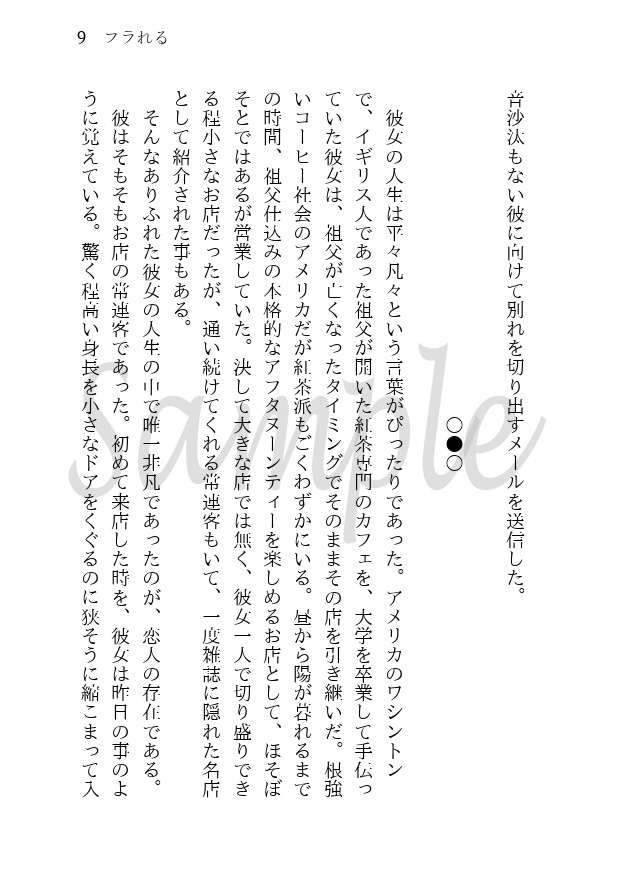 9 フラれる
音沙汰もない彼に向けて別れを切り出すメールを送信した。
○●○
彼女の人生は平々凡々という言葉がぴったりであった。アメリカのワシントン
で、イギリス人であった祖父が開いた紅茶専門のカフェを、大学を卒業して手伝っ
ていた彼女は、祖父が亡くなったタイミングでそのままその店を引き継いだ。根強
いコーヒー社会のアメリカだが紅茶派もごくわずかにいる。昼から陽が暮れるまで
の時間、祖父仕込みの本格的なアフタヌーンティーを楽しめるお店として、ほそぼ
そとではあるが営業していた。決して大きな店では無く、彼女一人で切り盛りでき
る程小さなお店だったが、通い続けてくれる常連客もいて、一度雑誌に隠れた名店
として紹介された事もある。
そんなありふれた彼女の人生の中で唯一非凡であったのが、恋人の存在である。
彼はそもそもお店の常連客であった。初めて来店した時を、彼女は昨日の事のよ
うに覚えている。驚く程高い身長を小さなドアをくぐるのに狭そうに縮こまって入
sample